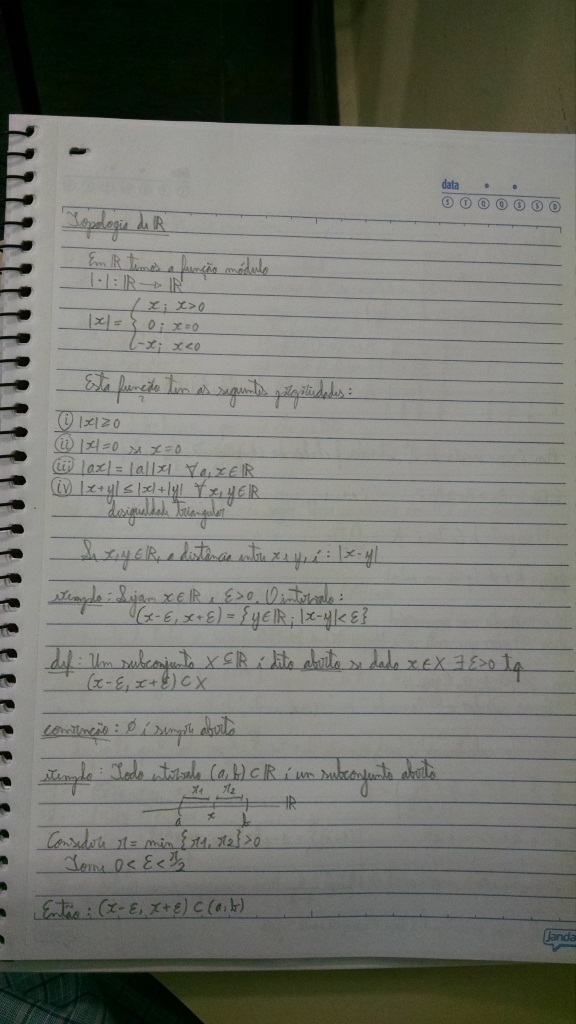 data
S T Q Q S S D
Topologia de ℝ
Em ℝ temos a função módulo
|·|: ℝ → ℝ
|x| = { x; x>0
0; x=0
-x; x<0
Esta função tem as seguintes propriedades:
(i) |x| ≥ 0
(ii) |x|=0 se x=0
(iii) |ax| = |a||x| ∀ a, x ∈ ℝ
(iv) |x+y| ≤ |x|+|y| ∀ x, y ∈ ℝ
desigualdade triangular
Se x, y ∈ ℝ, a distância entre x e y, é: |x-y|
exemplo: Sejam x ∈ ℝ e ε>0. O intervalo:
(x-ε, x+ε) = {y ∈ ℝ; |x-y| < ε}
def: Um subconjunto X ⊆ ℝ é dito aberto se dado x ∈ X ∃ ε>0 tq
(x-ε, x+ε) ⊂ X
convenção: ∅ é sempre aberto
exemplo: Todo intervalo (a, b) ⊂ ℝ é um subconjunto aberto
r1 r2
ℝ
a x b
Considere r = min {r1, r2} > 0
Tome 0 < ε < r/2
Então: (x-ε, x+ε) ⊂ (a, b)
Janda